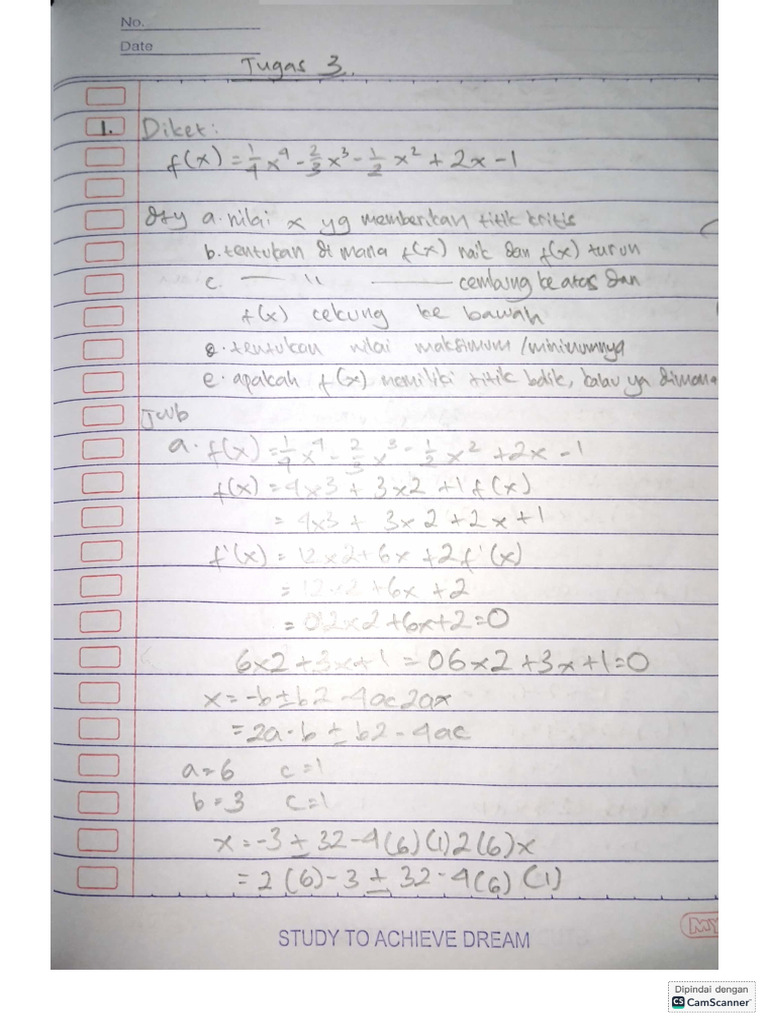 No.
Date
Tugas 3.
1. Diket:
f(x) = 1/4 x^4 - 2/3 x^3 - 1/2 x^2 + 2x - 1
Dty a. nilai x yg memberikan titik kritis
b. tentukan di mana f(x) naik dan f(x) turun
c. —— " —— cembung ke atas dan
f(x) cekung ke bawah
d. tentukan nilai maksimum/minimumnya
e. apakah f(x) memiliki titik balik, kalau ya dimana
Jwb
a. f(x) = 1/4 x^4 - 2/3 x^3 - 1/2 x^2 + 2x - 1
f(x) = 4x3 + 3x2 + 1 f(x)
= 4x3 + 3x2 + 2x + 1
f'(x) = 12x2 + 6x + 2 f'(x)
= 12x2 + 6x + 2
= 012x2 + 6x + 2 = 0
6x2 + 3x + 1 = 06x2 + 3x + 1 = 0
x = -b ± b2 - 4ac2ax
= 2a - b ± b2 - 4ac
a = 6 c = 1
b = 3 c = 1
x = -3 ± 32 - 4(6)(1)2(6)x
= 2(6) - 3 ± 32 - 4(6)(1)
STUDY TO ACHIEVE DREAM
MY
Dipindai dengan
CS CamScanner